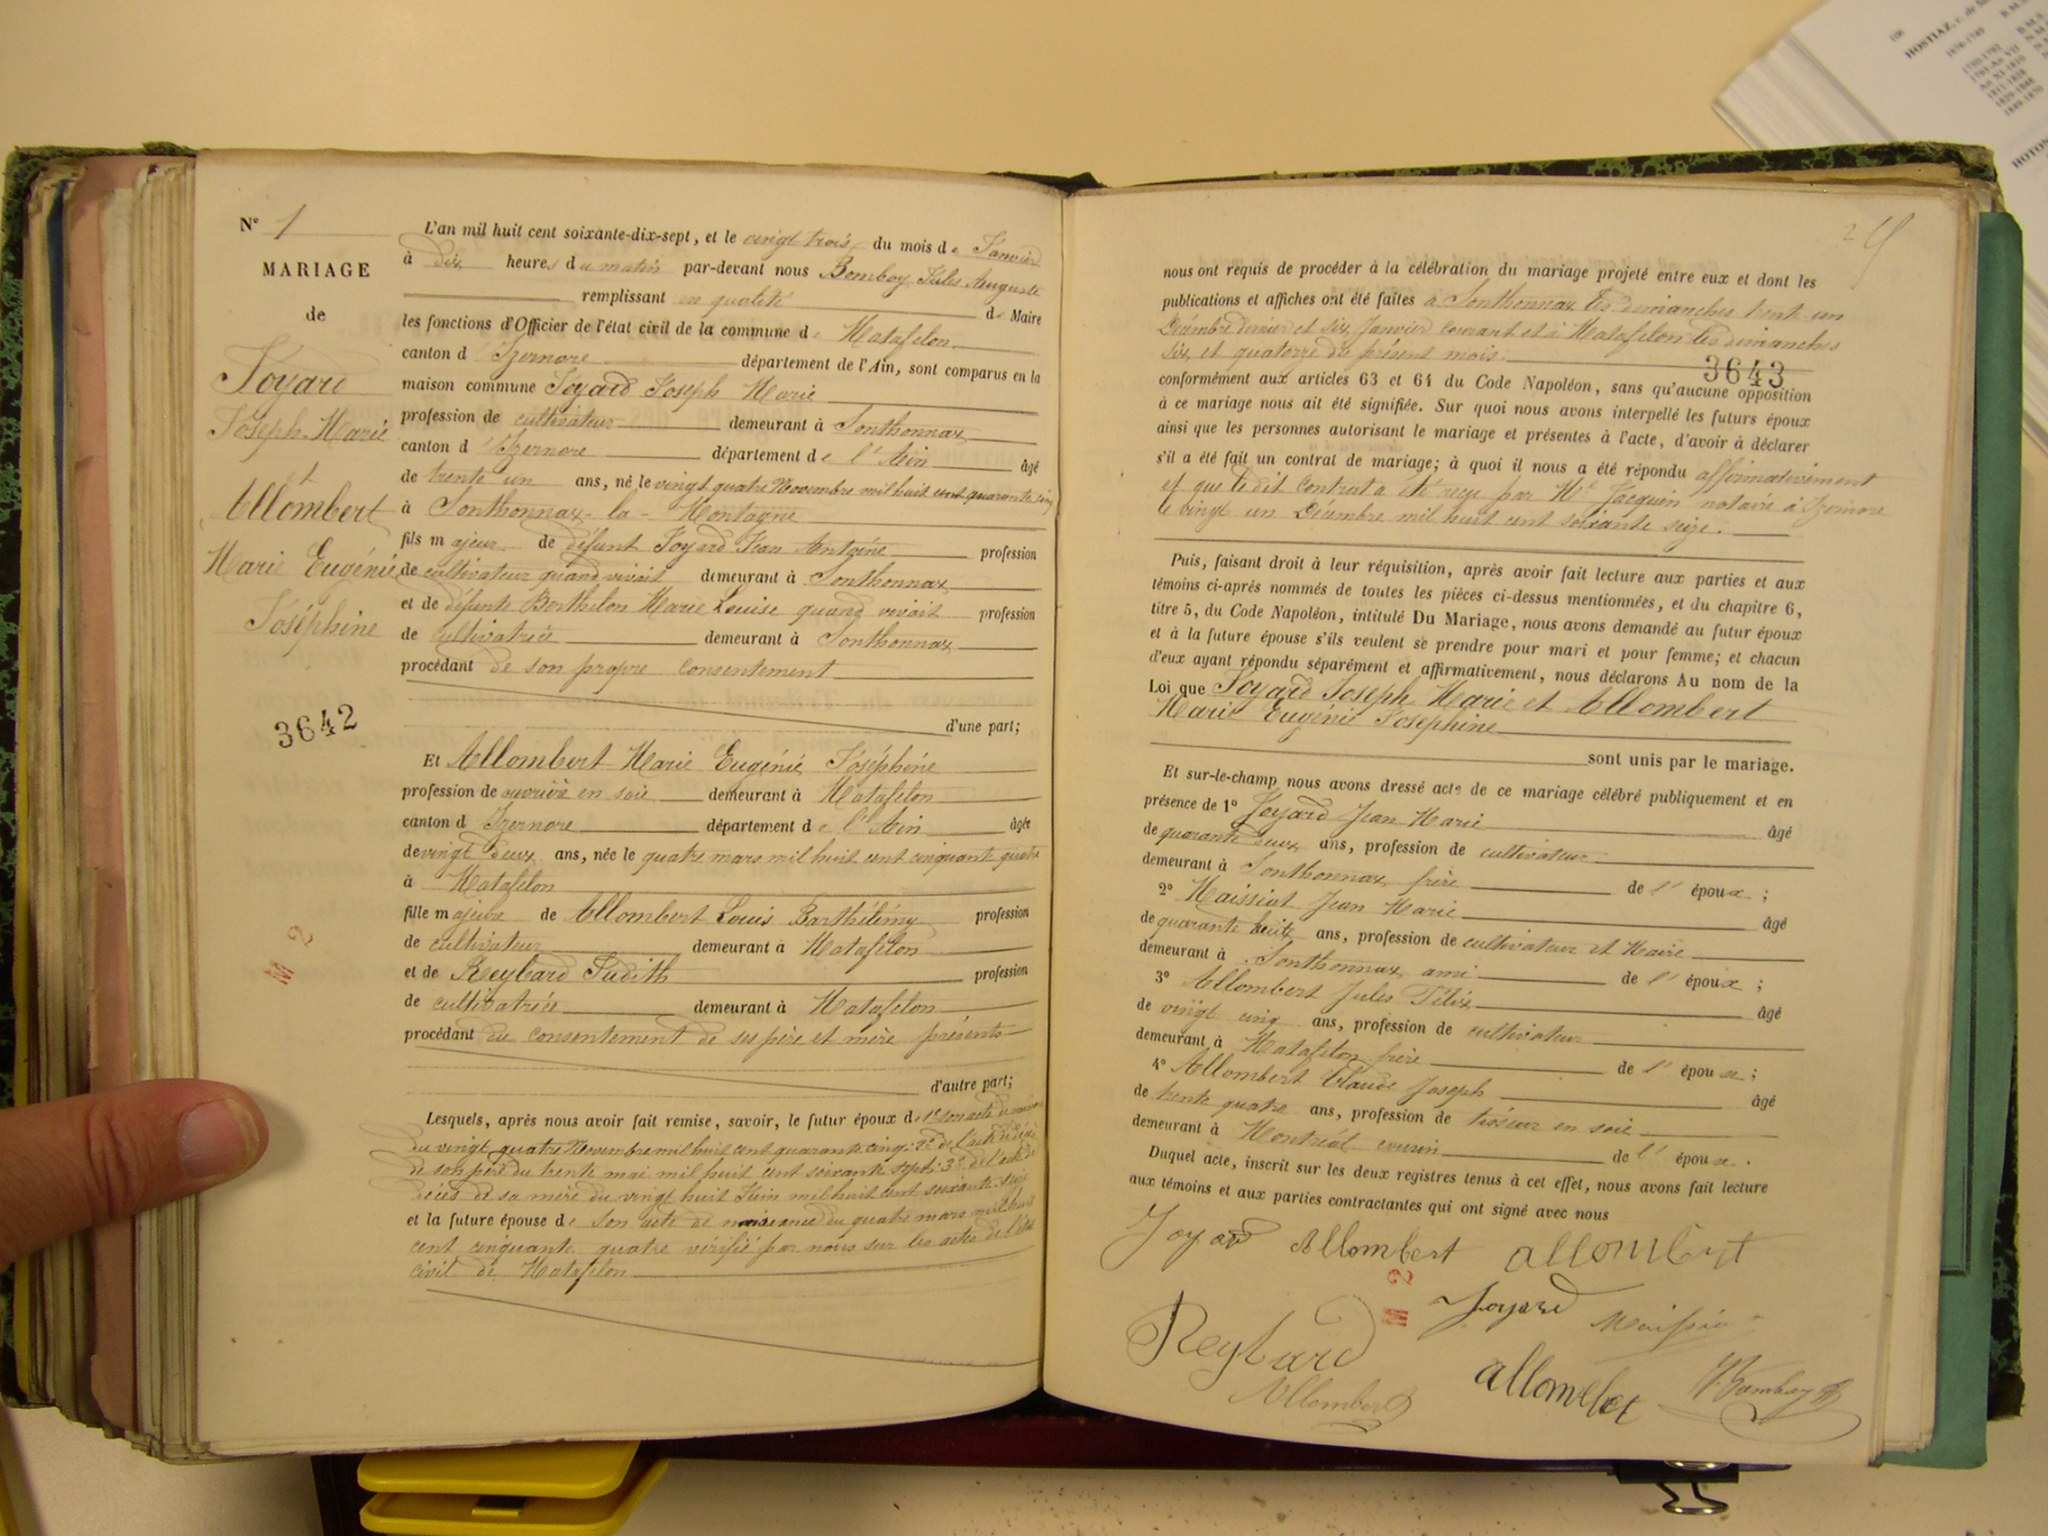 N° 1
MARIAGE
de
Joyard
Joseph Marie
et
Allombert
Marie Eugénie
Joséphine
3642
M 2
L'an mil huit cent soixante-dix-sept, et le vingt trois du mois de Janvier
à dix heures du matin par-devant nous Bomboy Jules Auguste
remplissant en qualité de Maire
les fonctions d'Officier de l'état civil de la commune de Matafelon
canton d'Izernore département de l'Ain, sont comparus en la
maison commune Joyard Joseph Marie
profession de cultivateur demeurant à Sonthonnax
canton d'Izernore département de l'Ain âgé
de trente un ans, né le vingt quatre Novembre mil huit cent quarante cinq
à Sonthonnax-la-Montagne
fils majeur de défunt Joyard Jean Antoine profession
de cultivateur quand vivait demeurant à Sonthonnax
et de défunte Berthelon Marie Louise quand vivait profession
de cultivatrice demeurant à Sonthonnax
procédant de son propre consentement
d'une part;
Et Allombert Marie Eugénie Joséphine
profession de ouvrière en soie demeurant à Matafelon
canton d'Izernore département de l'Ain âgée
de vingt deux ans, née le quatre mars mil huit cent cinquante quatre
à Matafelon
fille majeure de Allombert Louis Barthélémy profession
de cultivateur demeurant à Matafelon
et de Reybard Judith profession
de cultivatrice demeurant à Matafelon
procédant du consentement de ses père et mère présents
d'autre part;
Lesquels, après nous avoir fait remise, savoir, le futur époux de 1° son acte de naissance
du vingt quatre Novembre mil huit cent quarante cinq; 2° de l'acte de décès
de son père du trente mai mil huit cent soixante sept; 3° de l'acte de
décès de sa mère du vingt huit Juin mil huit cent soixante
et la future épouse de son acte de naissance du quatre mars mil huit
cent cinquante quatre vérifié par nous sur les actes de l'état
civil de Matafelon
nous ont requis de procéder à la célébration du mariage projeté entre eux et dont les
publications et affiches ont été faites à Sonthonnax les dimanches trente un
Décembre dernier et six Janvier courant et à Matafelon les dimanches
six et quatorze du présent mois.
3643
conformément aux articles 63 et 64 du Code Napoléon, sans qu'aucune opposition
à ce mariage nous ait été signifiée. Sur quoi nous avons interpellé les futurs époux
ainsi que les personnes autorisant le mariage et présentes à l'acte, d'avoir à déclarer
s'il a été fait un contrat de mariage; à quoi il nous a été répondu affirmativement
et que le dit contrat a été reçu par Me Jacquin notaire à Izernore
le vingt un Décembre mil huit cent soixante seize.
Puis, faisant droit à leur réquisition, après avoir fait lecture aux parties et aux
témoins ci-après nommés de toutes les pièces ci-dessus mentionnées, et du chapitre 6,
titre 5, du Code Napoléon, intitulé Du Mariage, nous avons demandé au futur époux
et à la future épouse s'ils veulent se prendre pour mari et pour femme; et chacun
d'eux ayant répondu séparément et affirmativement, nous déclarons Au nom de la
Loi que Joyard Joseph Marie et Allombert
Marie Eugénie Joséphine
sont unis par le mariage.
Et sur-le-champ nous avons dressé acte de ce mariage célébré publiquement et en
présence de 1° Joyard Jean Marie âgé
de quarante deux ans, profession de cultivateur
demeurant à Sonthonnax frère de l'époux;
2° Maissiat Jean Marie âgé
de quarante huit ans, profession de cultivateur et Maire
demeurant à Sonthonnax ami de l'époux;
3° Allombert Jules Félix âgé
de vingt cinq ans, profession de cultivateur
demeurant à Matafelon frère de l'épouse;
4° Allombert Claude Joseph âgé
de trente quatre ans, profession de tisseur en soie
demeurant à Montréal cousin de l'épouse.
Duquel acte, inscrit sur les deux registres tenus à cet effet, nous avons fait lecture
aux témoins et aux parties contractantes qui ont signé avec nous
Joyard Allombert allombert
M 2
Joyard Maissiat
Reybard
Allombert allombert Bomboy
106
HOSTIAZ, c. de
1876-1749